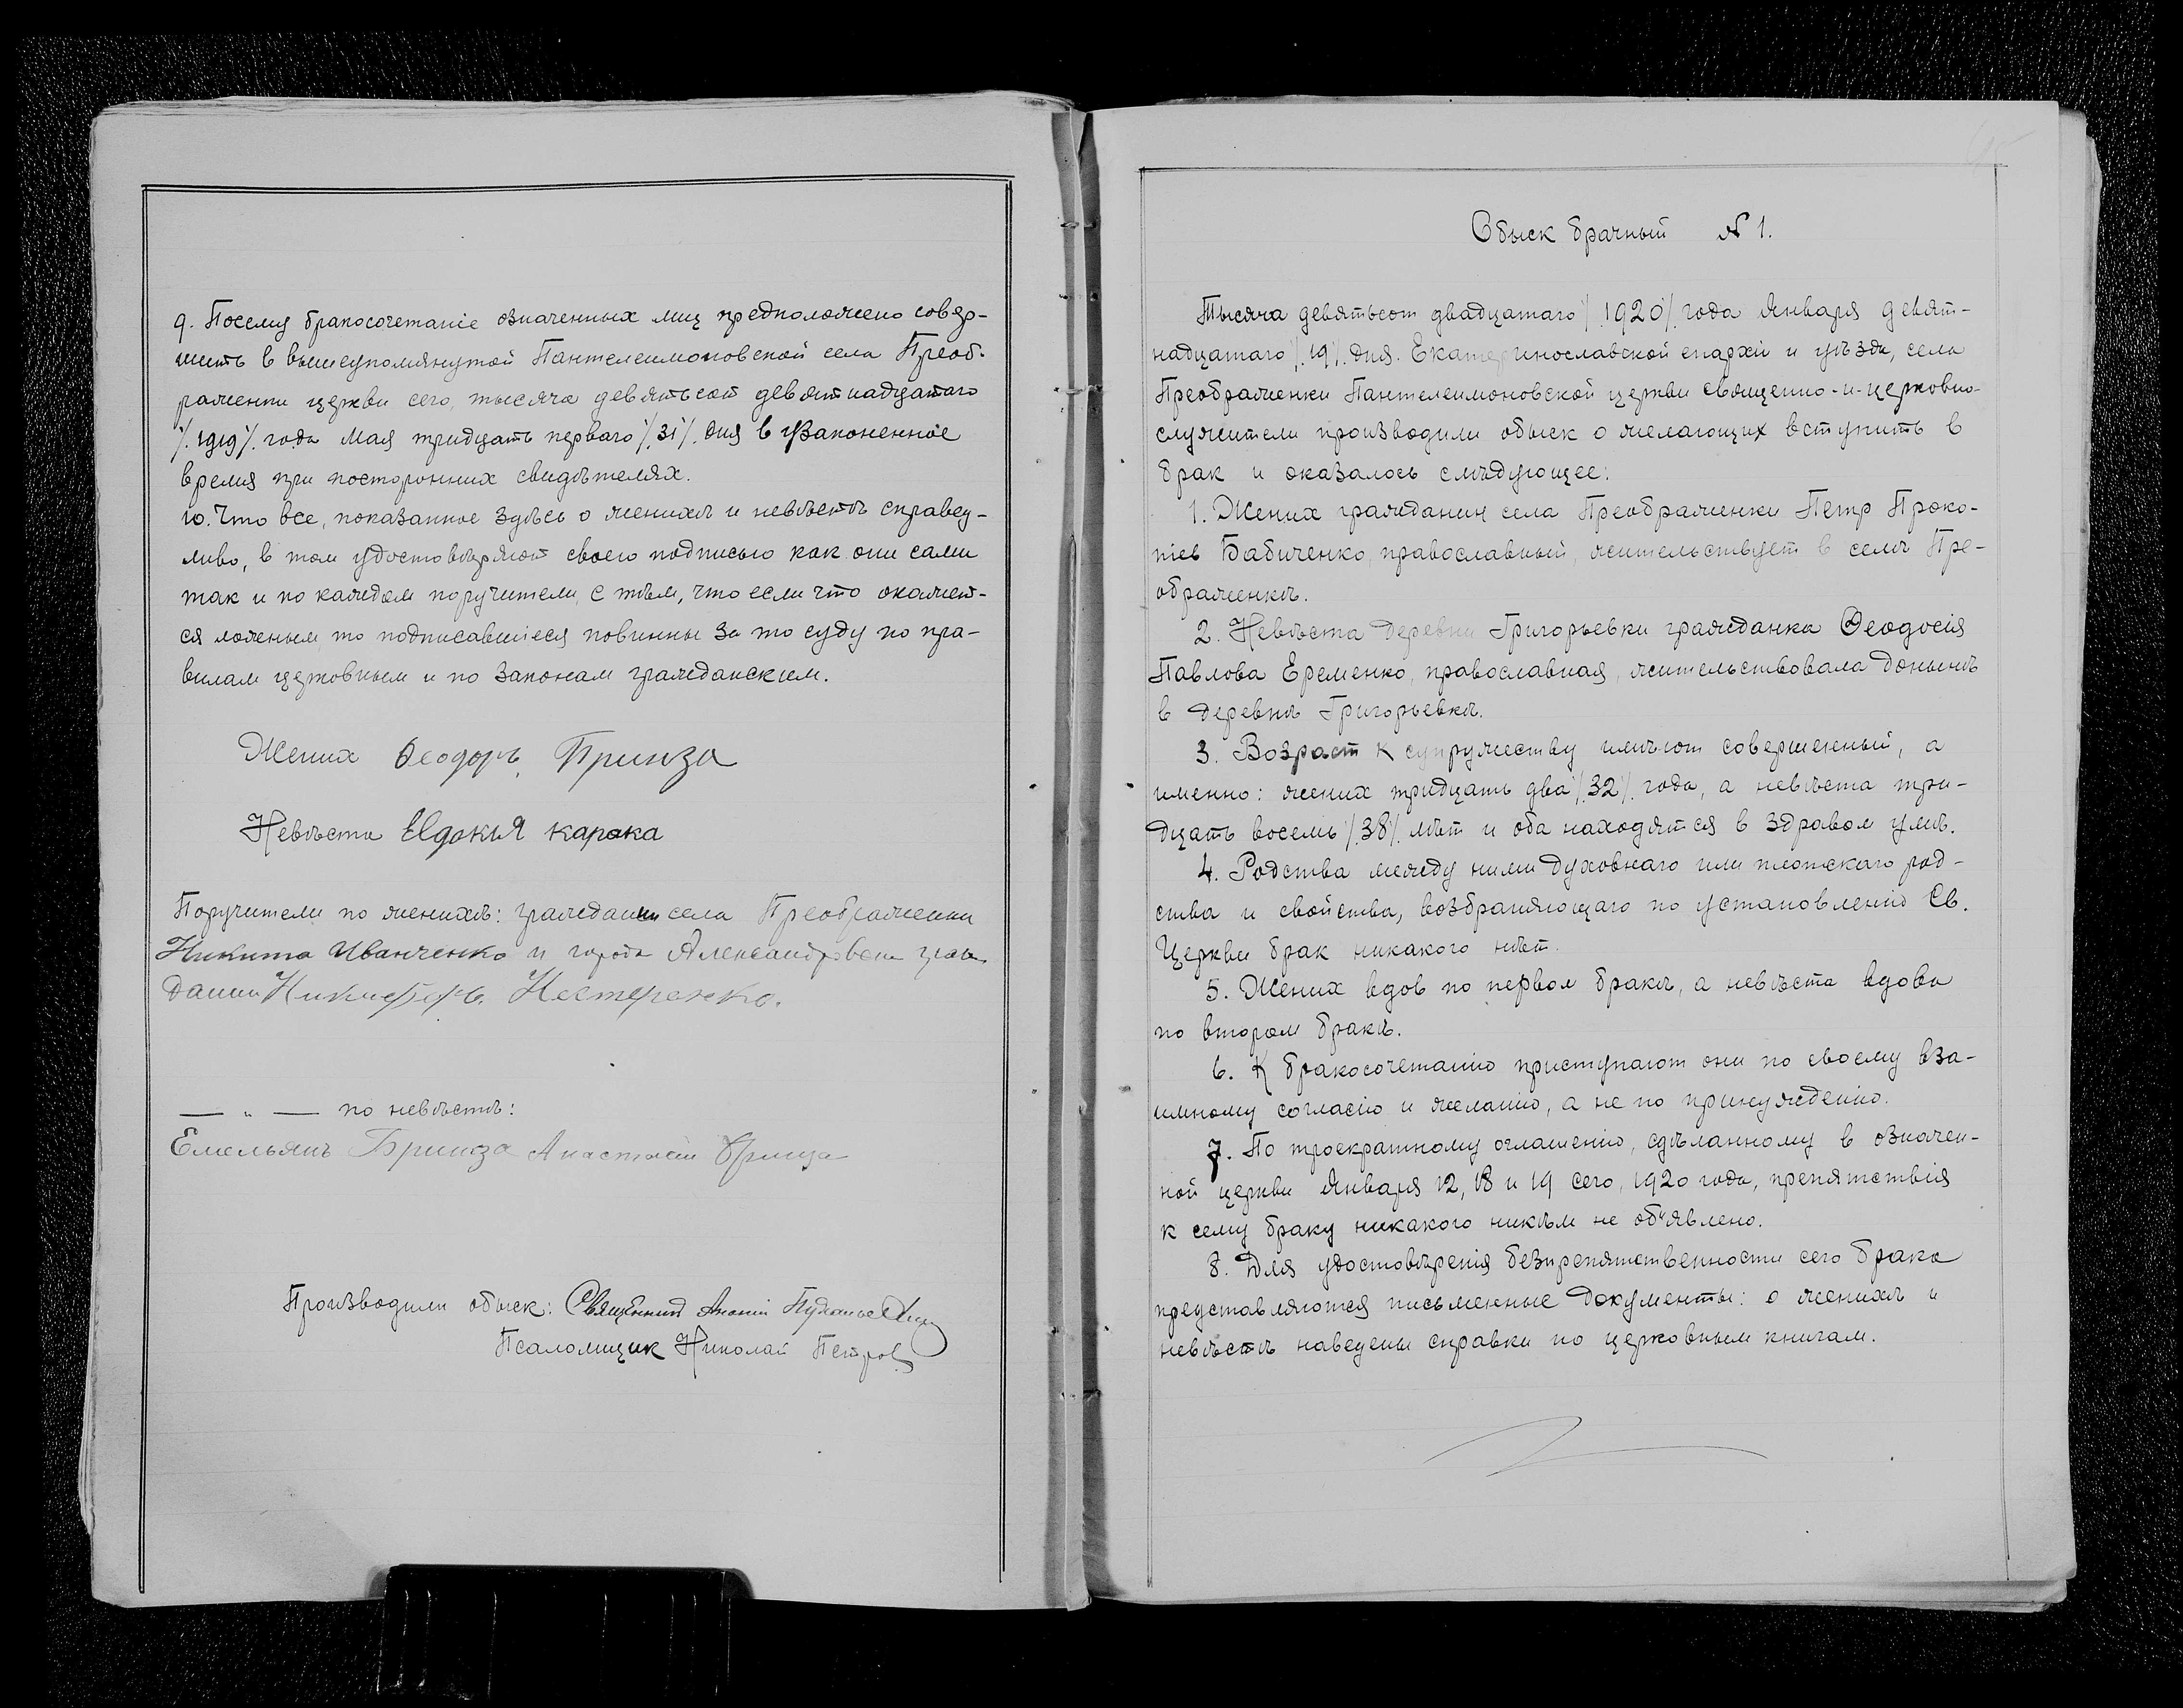 9. Посему бракосочетаніе означенных лиц предположено совер-
шить в вышеупомянутой Пантелеимоновской села Преоб-
раженки церкви сего, тысяча девятьсот девятнадцатаго
/.1919/. года Мая тридцать перваго /.31/. дня в узаконенное
время при посторонних свидѣтелях.
10. Что все, показанное здѣсь о женихѣ и невѣстѣ справед-
ливо, в том удостовѣряют своею подписью как они сами
так и по каждом поручители, с тѣм, что если что окажет-
ся ложным, то подписавшіеся повинны за то суду по пра-
вилам церковным и по законам гражданским.
Жених Ѳеодоръ Принза
Невѣста Евдокия карака
Поручители по женихѣ: граждании села Преображенки
Никита Иванченко и города Александровска граж
данин Никифоръ Нестеренко.
— „ — по невѣстѣ:
Емельянъ Бринза Анастасій
Производили обыск: Священник
Псаломщик Николай Петров
Обыск брачный № 1.
Тысяча девятьсот двадцатаго /.1920/. года Января девят-
надцатаго /.19/. дня. Екатеринославской епархіи и уѣзда, села
Преображенки Пантелеимоновской церкви священно-и-церковно-
служители производили обыск о желающих вступить в
брак и оказалось слѣдующее:
1. Жених гражданин села Преображенки Петр Проко-
піев Бабиченко, православный, жительствует в селѣ Пре-
ображенкѣ.
2. Невѣста деревни Григорьевки гражданка Ѳеодосія
Павлова Еременко, православная, жительствовала донынѣ
в деревнѣ Григорьевкѣ.
3. Возраст к супружеству имѣют совершенный, а
именно: жених тридцать два /.32/. года, а невѣста три-
дцать восемь /.38/. лѣт и оба находятся в здравом умѣ.
4. Родства между ними духовнаго или плотскаго род-
ства и свойства, возбраняющаго по установленію Св.
Церкви брак никакого нѣт.
5. Жених вдов по первом бракѣ, а невѣста вдова
по втором бракѣ.
6. К бракосочетанію приступают они по своему вза-
имному согласію и желанію, а не по принужденію.
7. По троекратному оглашенію, сдѣланному в означен-
ной церкви Января 12, 18 и 19 сего, 1920 года, препятствія
к сему браку никакого никѣм не об"явлено.
8. Для удостовѣренія безпрепятственности сего брака
представляются письменные документы: о женихѣ и
невѣстѣ наведены справки по церковным книгам.